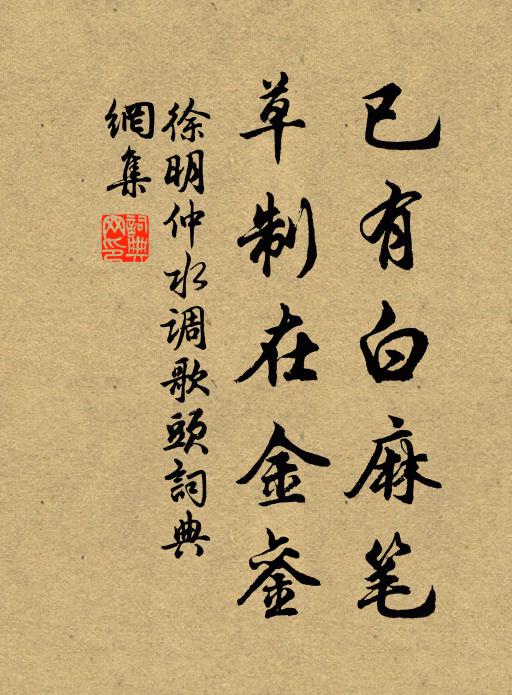 已有白麻笔
草制在金銮
徐明仲水调歌頭詞典
網集
詞典
网印